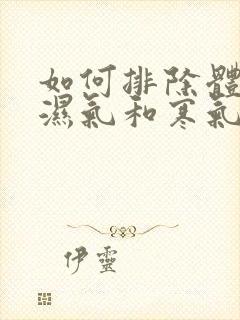 如何排除體
濕氣和寒氣
伊靈